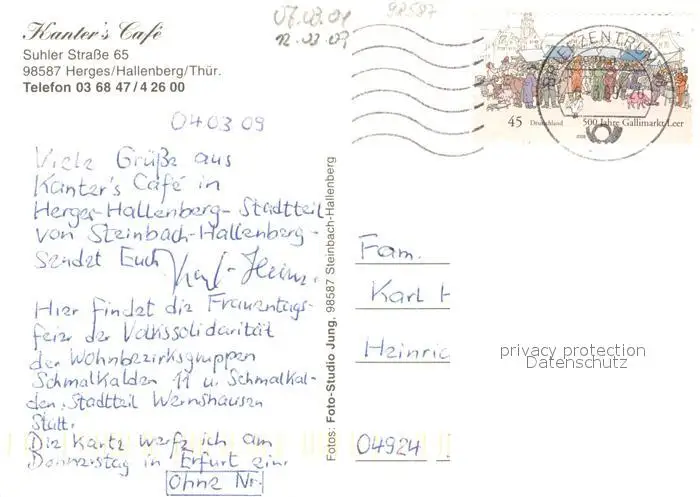 Kanter's Café
Suhler Straße 65
98587 Herges/Hallenberg/Thür.
Telefon 03 68 47/4 26 00
98587
12.03.09
04.03.09
Viele Grüße aus
Kanter's Café in
Herges-Hallenberg-Stadtteil
von Steinbach-Hallenberg-
Sendet Euch Karl-Heinz.
Hier findet die Frauentags-
feier der Volkssolidarität
der Wohnbezirksgruppen
Schmalkalden 11 u. Schmalkal-
den, Stadtteil Wernshausen
Statt.
Die Karte werfe ich am
Donnerstag in Erfurt ein.
Ohne Nr.
Fotos: Foto-Studio Jung, 98587 Steinbach-Hallenberg
BRIEFZENTRUM
45 Deutschland 500 Jahre Gallimarkt Leer
Fam.
Karl H
Heinric
04924
privacy protection
Datenschutz